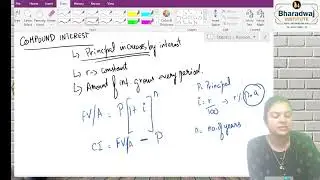 Bharadwaj
INSTITUTE
COMPOUND INTEREST
↳ Principal increases by interest
↳ r → constant
↳ Amount of int. grows every period.
FV/A = P[1 + i]^n
CI = FV/A - P
P: Principal
i = r/100 → r:
n = no. of years